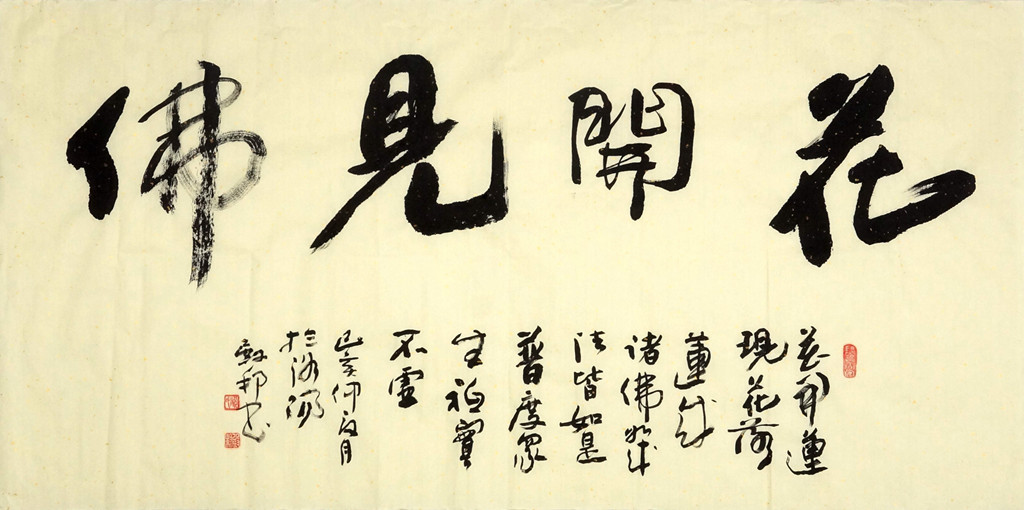 花開見佛
花開蓮
現花落
蓮成
諸佛如來
法皆如是
普度眾
生祖實
不虛
己亥仲夏月
於洛陽
書